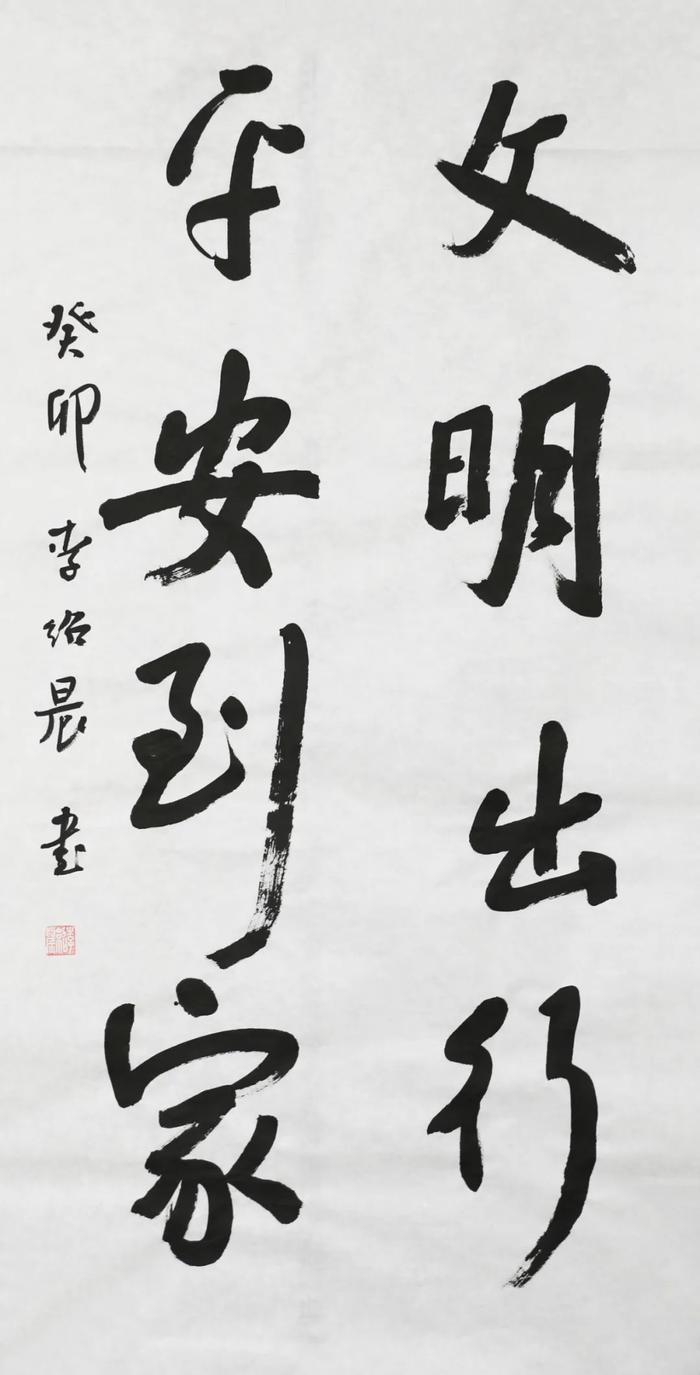 文明出行
平安到家
癸卯 李绍晨 书